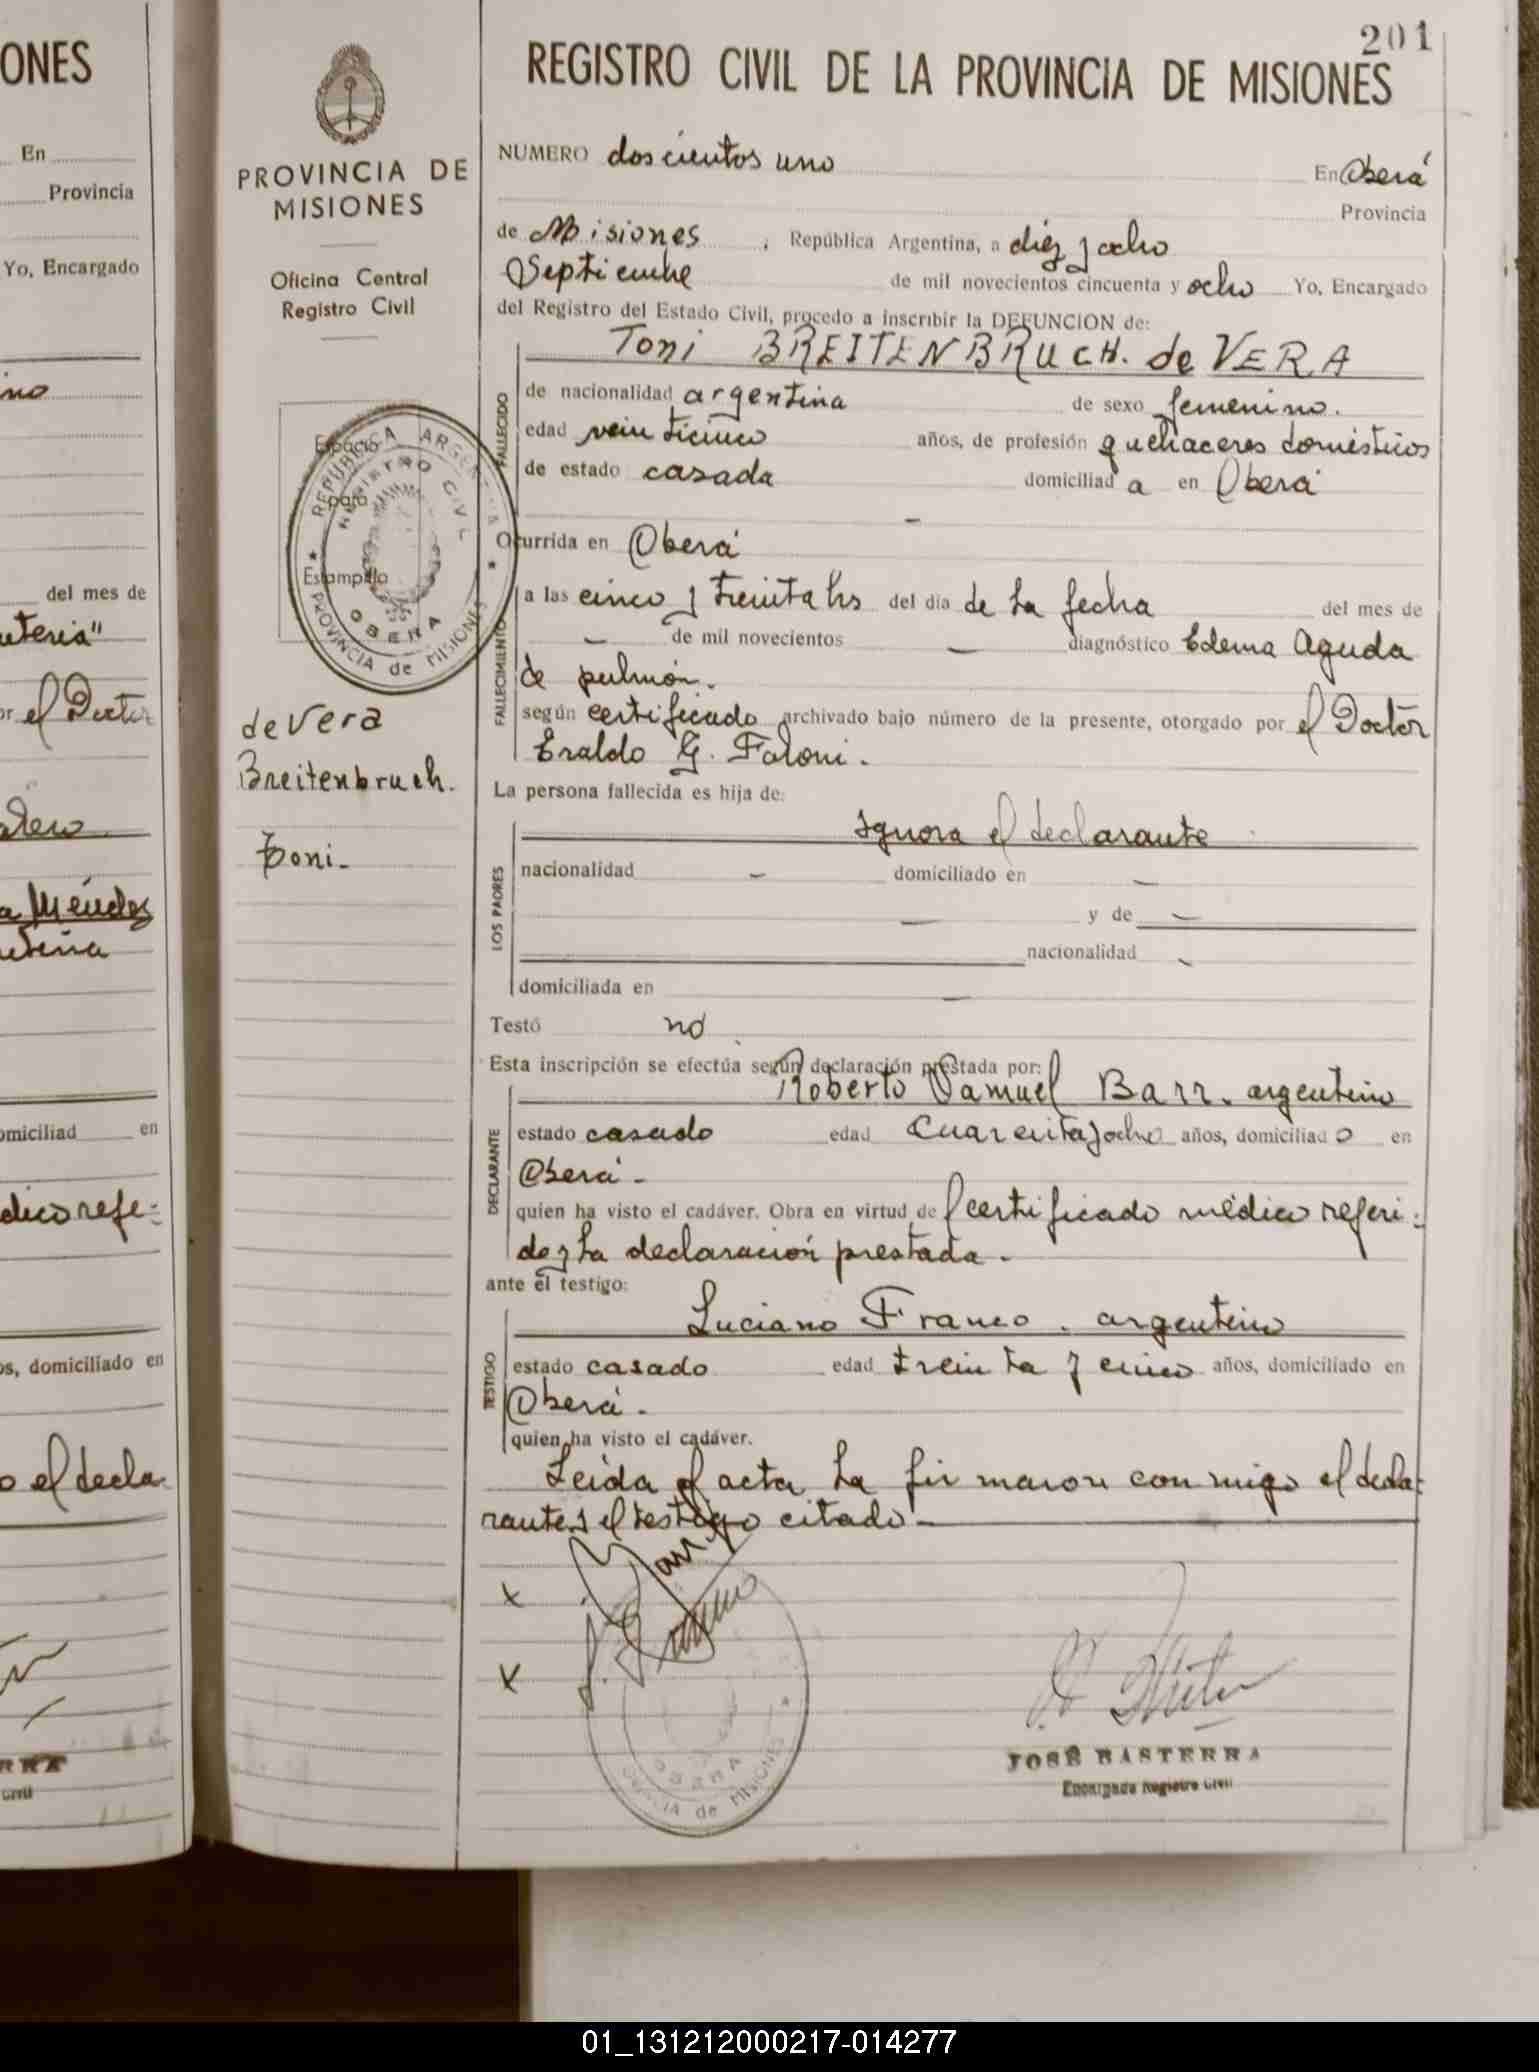 201
REGISTRO CIVIL DE LA PROVINCIA DE MISIONES
PROVINCIA DE
MISIONES
Oficina Central
Registro Civil
Espacio
para
Estampilla
REPUBLICA ARGENTINA
REGISTRO CIVIL
OBERA
PROVINCIA de MISIONES
de Vera
Breitenbruch.
Toni-
NUMERO doscientos uno
En Oberá
Provincia
de Misiones, República Argentina, a diez y ocho
Septiembre de mil novecientos cincuenta y ocho Yo, Encargado
del Registro del Estado Civil, procedo a inscribir la DEFUNCION de:
Toni BREITENBRUCH. de VERA
FALLECIDO
de nacionalidad argentina de sexo femenino.
edad veinticinco años, de profesión quehaceres domésticos
de estado casada domiciliad a en Oberá
-
Ocurrida en Oberá
FALLECIMIENTO
a las cinco y treinta hs del día de la fecha del mes de
- de mil novecientos - diagnóstico Edema Aguda
de pulmón.
según certificado archivado bajo número de la presente, otorgado por el Doctor
Eraldo G. Faloni.
La persona fallecida es hija de:
LOS PADRES
Ignora el declarante
nacionalidad - domiciliado en -
- y de -
nacionalidad -
domiciliada en -
Testó no
Esta inscripción se efectúa según declaración prestada por:
DECLARANTE
Roberto Samuel Barr. argentino
estado casado edad Cuarenta y ocho años, domiciliad o en
Oberá-
quien ha visto el cadáver. Obra en virtud del certificado médico referi-
do y la declaración prestada.
ante el testigo:
TESTIGO
Luciano Franco. argentino
estado casado edad treinta y cinco años, domiciliado en
Oberá.
quien ha visto el cadáver.
Leída el acta la firmaron conmigo el decla-
rante y el testigo citado.
x
x
OBERA
PROVINCIA de MISIONES
JOSÉ BASTERRA
Encargado Registro Civil
ONES
En
Provincia
Yo, Encargado
no
del mes de
el Doctor
a Méndez
omiciliad en
dico refe-
os, domiciliado en
o el decla-
RRA
Civil
01_131212000217-014277